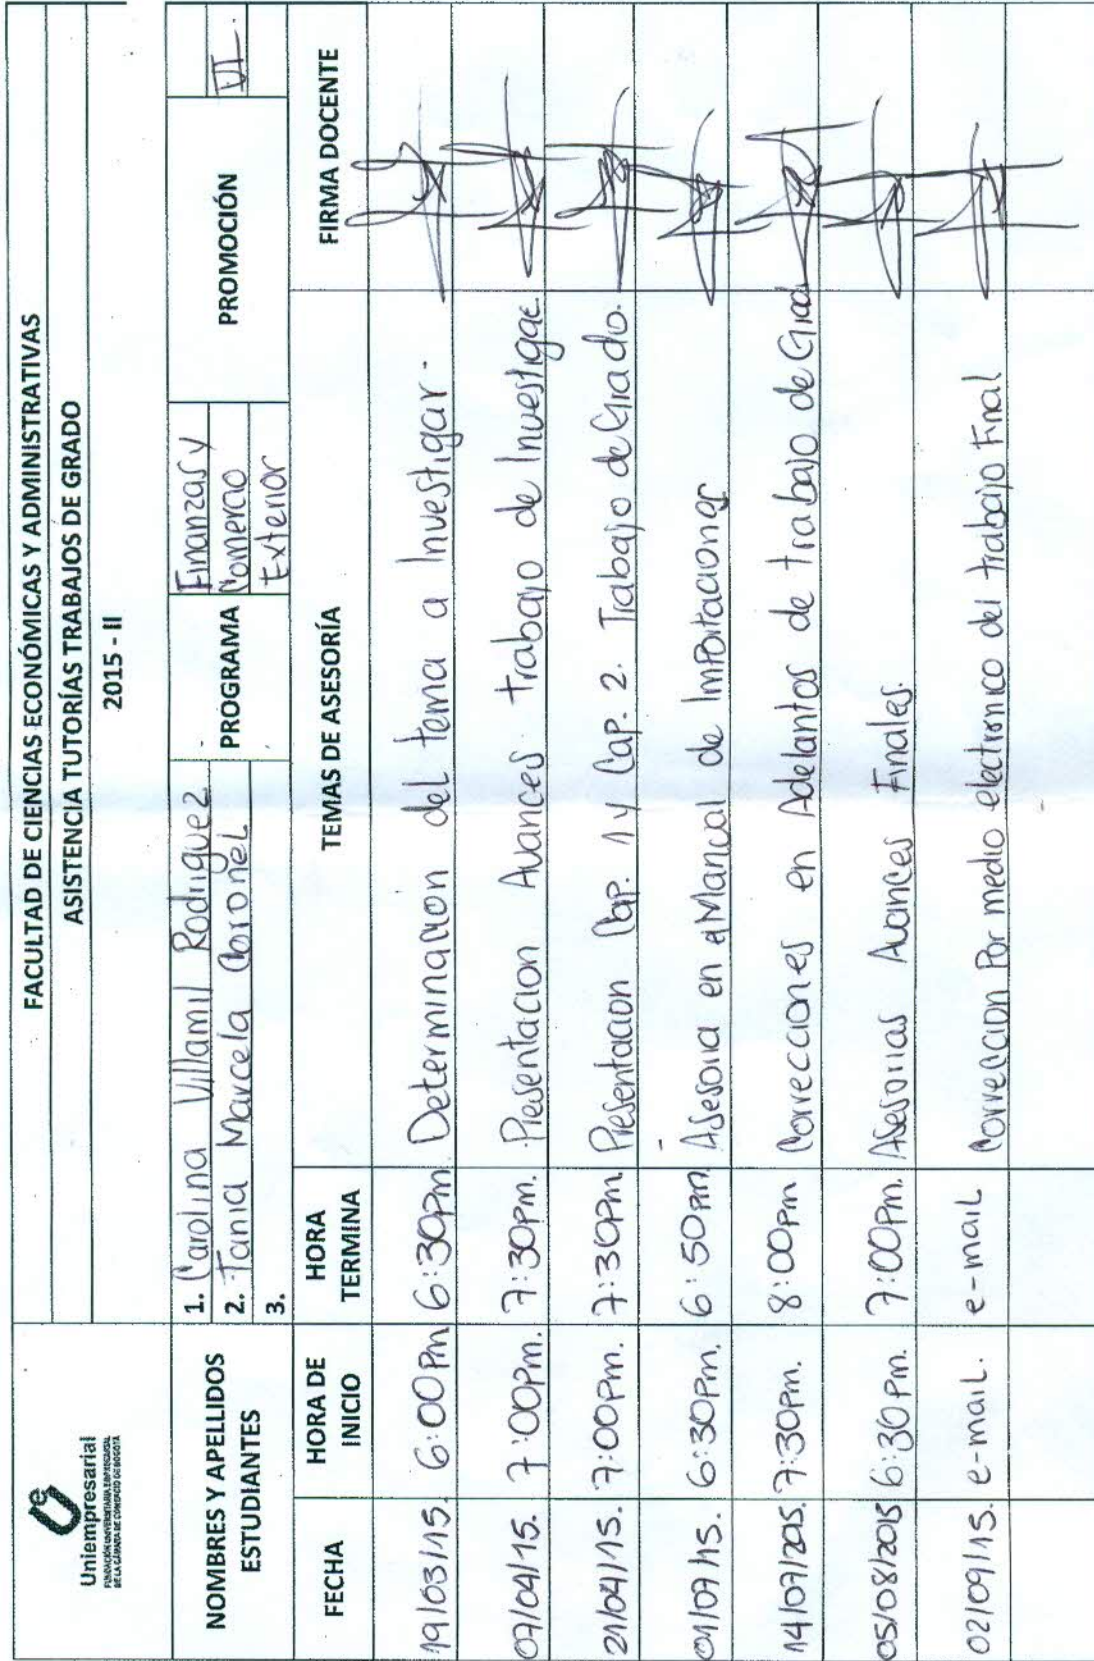 Uniempresarial
FUNDACIÓN UNIVERSITARIA EMPRESARIAL
DE LA CÁMARA DE COMERCIO DE BOGOTÁ
FACULTAD DE CIENCIAS ECONÓMICAS Y ADMINISTRATIVAS
ASISTENCIA TUTORÍAS TRABAJOS DE GRADO
2015 - II
NOMBRES Y APELLIDOS ESTUDIANTES
1. Carolina Villamil Rodriguez
2. Tania Marcela Coronel
3.
PROGRAMA
Finanzas y
Comercio
Exterior
PROMOCIÓN
VI.
FECHA HORA DE INICIO HORA TERMINA TEMAS DE ASESORÍA FIRMA DOCENTE
19/03/15. 6:00Pm 6:30pm. Determinacion del tema a Investigar.
07/04/15. 7:00Pm. 7:30pm. Presentacion Avances trabajo de Investigac
21/04/15. 7:00Pm. 7:30Pm Presentacion Cap. 1 y Cap. 2. Trabajo de Grado.
01/07/15. 6:30Pm. 6:50pm. Asesoria en el Manual de Importaciones
14/07/2015. 7:30Pm. 8:00Pm Correcciones en Adelantos de trabajo de Grad
05/08/2015 6:30Pm. 7:00Pm. Asesorias Avances Finales.
02/09/15. e-mail. e-mail Correccion Por medio electronico del trabajo Final